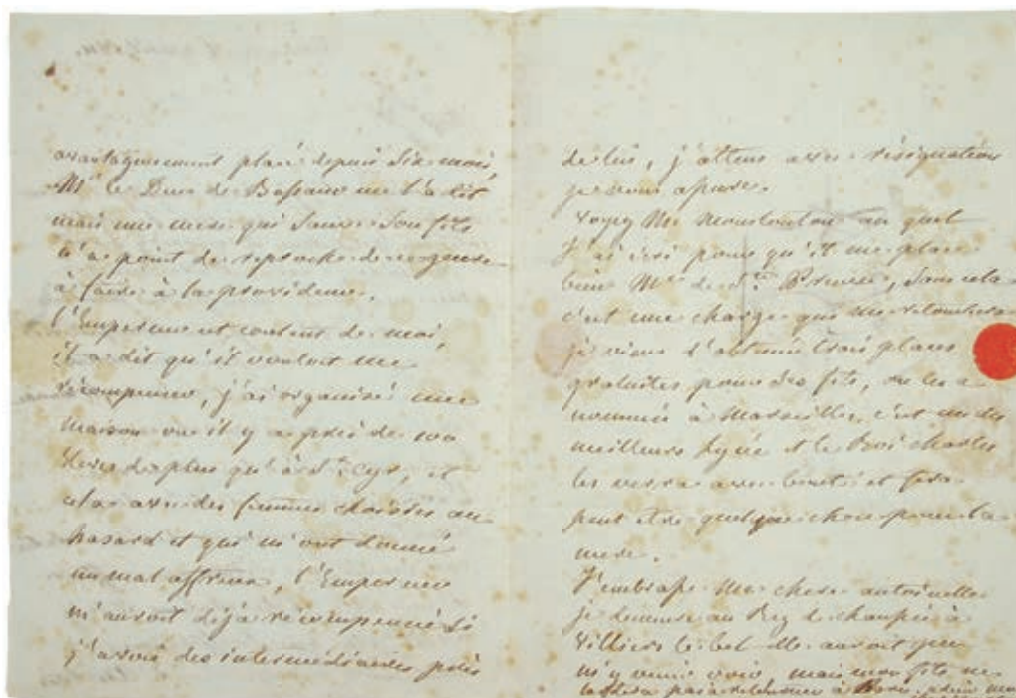 avantageusement placé depuis six mois,
Mr le Duc de Bassano me l'a dit
mais une mere qui sauve son fils
n'a point de reproche de rigueur
à faire à la providence.
l'Empereur est content de moi,
il a dit qu'il vouloit me
récompenser, j'ai organisé une
maison ou il y a près de 100
Eleves de plus qu'à St. Cyr, et
cela avec des femmes choisies au
hasard et qui m'ont donné
un mal affreux, l'Empereur
m'auroit déjà récompensé si
j'avois des intermédiaires près
de lui, j'attens avec résignation
je vous assure.
voyez Mr au quel
J'ai écri pour qu'il me place
bien Me de St. , sans cela
c'est une charge qui me retombera
je viens d'obtenir trois places
gratuites pour des fils, on les a
nommés à Marseille, c'est un des
meilleurs Lycée et le Roi charles
les verra avec bonté et fera
peut etre quelque chose pour la
mere.
J'embrasse ma chere antoinette
je demeure au Rez de chaussée à
villiers le bel elle auroit pu
m'y venir voir mais mon fils ne
la pas à